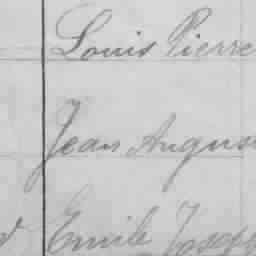 Louis Pierre
Jean Augus
Emile Joseph